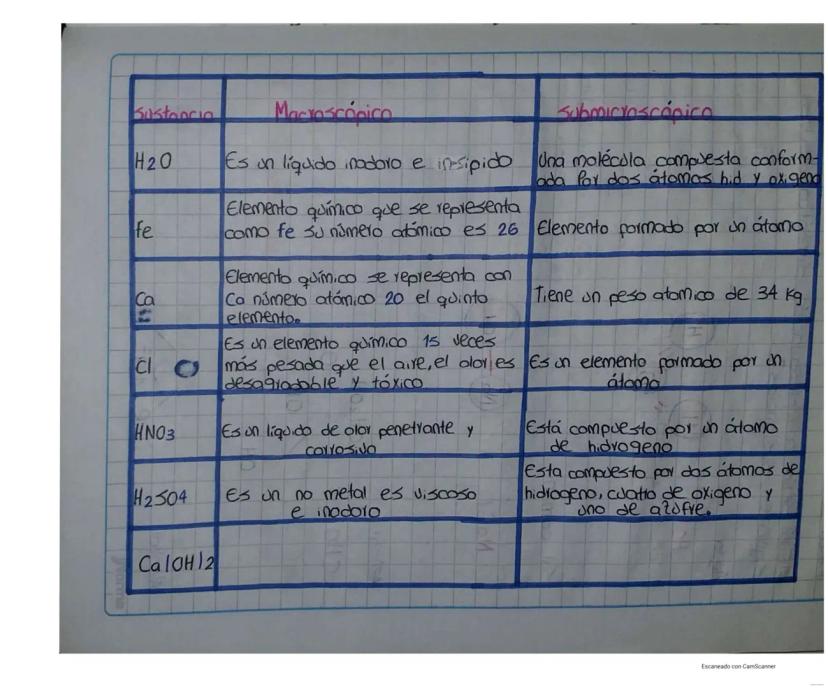 Sustancia Macroscópico Submicroscópico
H2O
Es un líquido inodoro e insipido
Una molécula compuesta conform-
ada por dos átomos hid y oxigeno
fe
Elemento químico que se representa
como fe su número atómico es 26
Elemento formado por un átomo
Ca
Elemento químico se representa con
Ca número atómico 20 el quinto
elemento.
Tiene un peso atomico de 34 kg
Cl
Es un elemento químico 15 veces
más pesada que el aire, el olor es
desagradable y tóxico
Es un elemento formado por un
átomo
HNO3
Es un líquido de olor penetrante y
corrosivo
Está compuesto por un átomo
de hidrogeno
H2SO4
Es un no metal es viscoso
e inodoro
Esta compuesto por dos átomos de
hidrogeno, cuatro de oxigeno y
uno de azufre.
Ca(OH)2
Escaneado con CamScanner